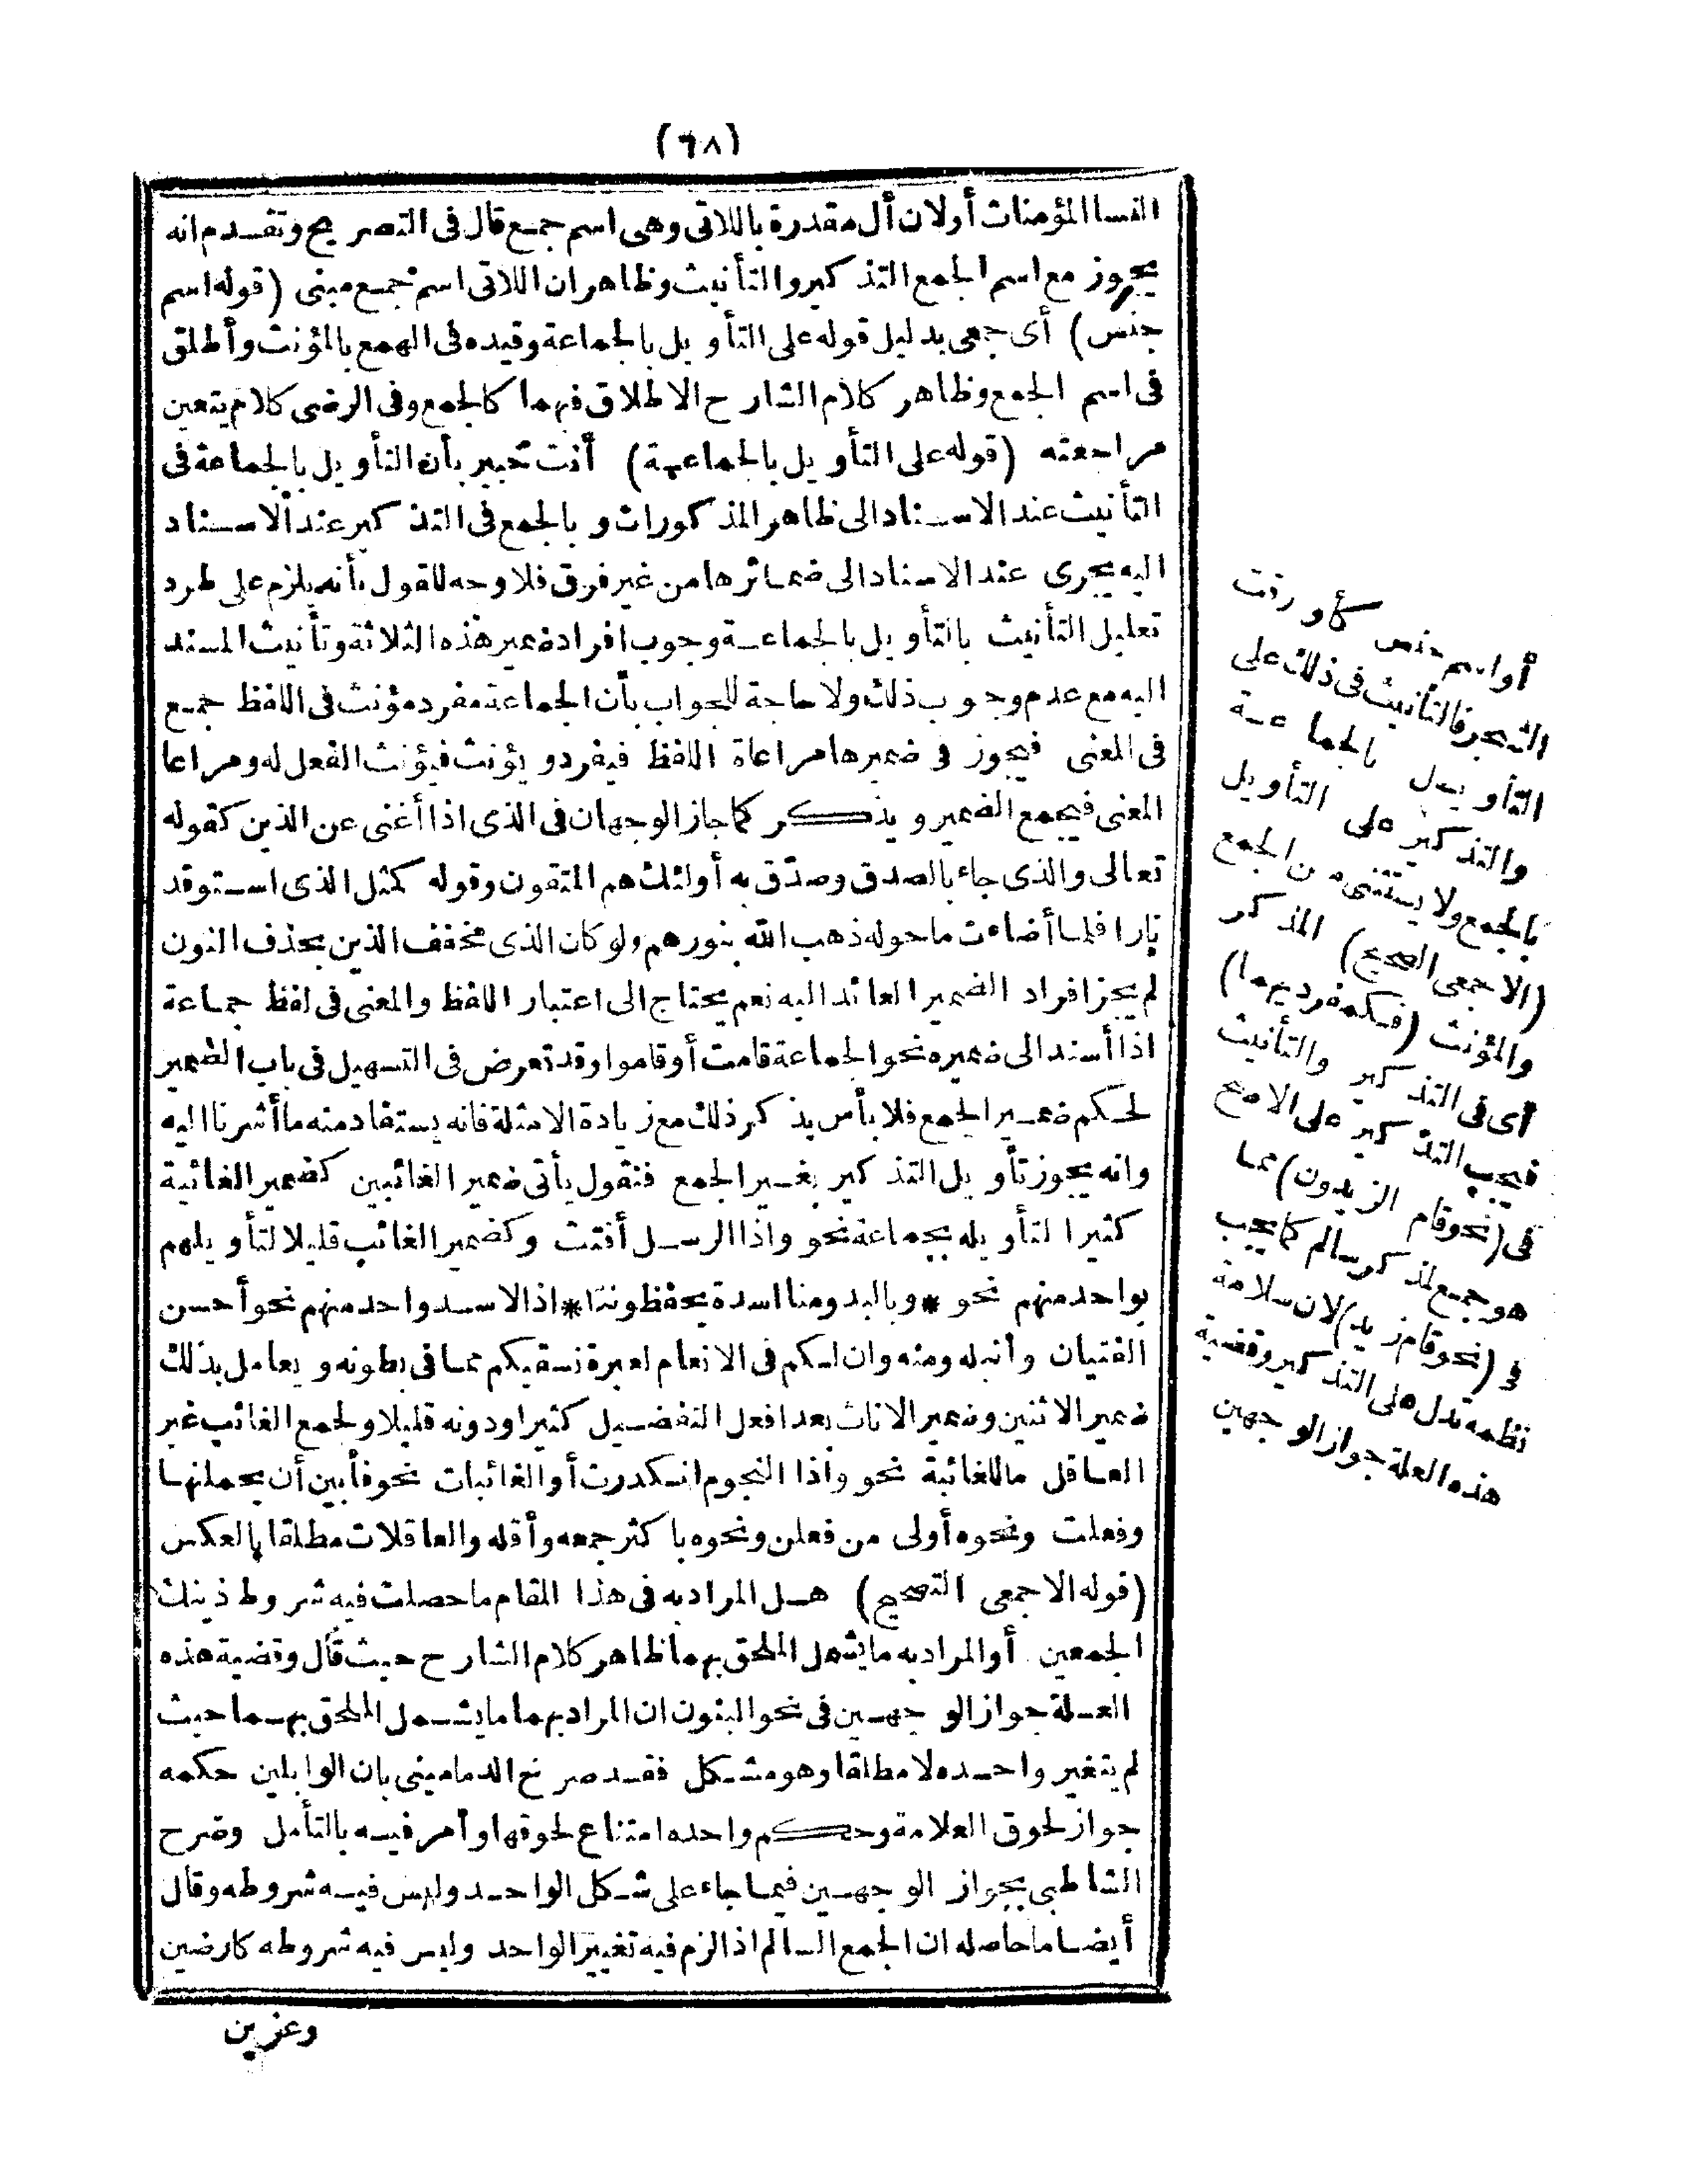 (٦٨)
النسا المؤمنات أو لان أل مقدرة باللاتى وهى اسم جمع قال فى التصريح وتقدم انه
يجوز مع اسم الجمع التذكير والتأنيث وظاهر ان اللاتى اسم جمع مبنى (قوله اسم
جنس) أى جمعى بدليل قوله على التأويل بالجماعة وقيده فى الهمع بالمؤنث وأطلق
فى اسم الجمع وظاهر كلام الشارح الاطلاق فيهما كالجمع وفى الرضى كلام يتعين
مراجعته (قوله على التأويل بالجماعة) أنت خبير بأن التأويل بالجماعة فى
التأنيث عند الاسناد الى ظاهر المذكورات و بالجمع فى التذكير عند الاسناد
اليه يجرى عند الاسناد الى ضمائرها من غير فرق فلا وجه للقول بأنه يلزم على طرد
تعليل التأنيث بالتأويل بالجماعة وجوب افراد ضمير هذه الثلاثة وتأنيث المسند
اليه مع عدم وجوب ذلك ولا حاجة للجواب بأن الجماعة مفرد مؤنث فى اللفظ جمع
فى المعنى فيجوز فى ضميرها مراعاة اللفظ فيفرد و يؤنث فيؤنث الفعل له ومراعا
المعنى فيجمع الضمير و يذكر كما جاز الوجهان فى الذى اذا أغنى عن الذين كقوله
تعالى والذى جاء بالصدق وصدّق به أولئك هم المتقون وقوله كمثل الذى استوقد
نارا فلما أضاءت ما حوله ذهب الله بنورهم ولو كان الذى مخفف الذين بحذف النون
لم يجز افراد الضمير العائد اليه نعم يحتاج الى اعتبار اللفظ والمعنى فى لفظ جماعة
اذا أسند الى ضميره نحو الجماعة قامت أو قاموا وقد تعرض فى التسهيل فى باب الضمير
لحكم ضمير الجمع فلا بأس بذكر ذلك مع زيادة الامثلة فانه يستفاد منه ما أشرنا اليه
وانه يجوز تأويل التذكير بغير الجمع فنقول يأتى ضمير الغائبين كضمير الغائبة
كثيرا لتأويله بجماعة نحو واذا الرسل أقتت وكضمير الغائب قليلا لتأويلهم
بواحد منهم نحو * وبالبدو منا اسدة يحفظوننا * اذ الاسد واحد منهم نحو أحسن
الفتيان وأنبله ومنه وان لكم فى الانعام لعبرة نسقيكم مما فى بطونه و يعامل بذلك
ضمير الاثنين وضمير الاناث بعد افعل التفضيل كثيرا ودونه قليلا ولجمع الغائب غير
العاقل ما للغائبة نحو واذا النجوم انكدرت أو الغائبات نحو فأبين أن يحملنها
وفعلت ونحوه أولى من فعلن ونحوه با كثر جمعه وأقله والعاقلات مطلقا بالعكس
(قوله الا جمعى التصحيح) هل المراد به فى هذا المقام ما حصلت فيه شروط ذينك
الجمعين أو المراد به ما يشمل الملحق بهما ظاهر كلام الشارح حيث قال وقضية هذه
العلة جواز الوجهين فى نحو البنون ان المراد بهما ما يشمل الملحق بهما حيث
لم يتغير واحده لا مطلقا وهو مشكل فقد صرح الدمامينى بان الوابلين حكمه
جواز لحوق العلامة وحكم واحده امتناع لحوقها وأمر فيه بالتأمل وصرح
الشاطبى بجواز الوجهين فيما جاء على شكل الواحد وليس فيه شروطه وقال
أيضا ما حاصله ان الجمع السالم اذا لزم فيه تغيير الواحد وليس فيه شروطه كارضين
وعزين
أو اسم جنس كأورقت
الشجر فالتأنيث فى ذلك على
التأويل بالجماعة
والتذكير على التأويل
بالجمع ولا يستثنى من الجمع
(الا جمعى الصحيح) المذكر
والمؤنث (فكمفرديهما)
أى فى التذكير والتأنيث
فيجب التذكير على الاصح
فى (نحو قام الزيدون) مما
هو جمع لمذكر سالم كما يجب
فى (نحو قام زيد) لان سلامة
نظمه تدل على التذكير وقضية
هذه العلة جواز الوجهين